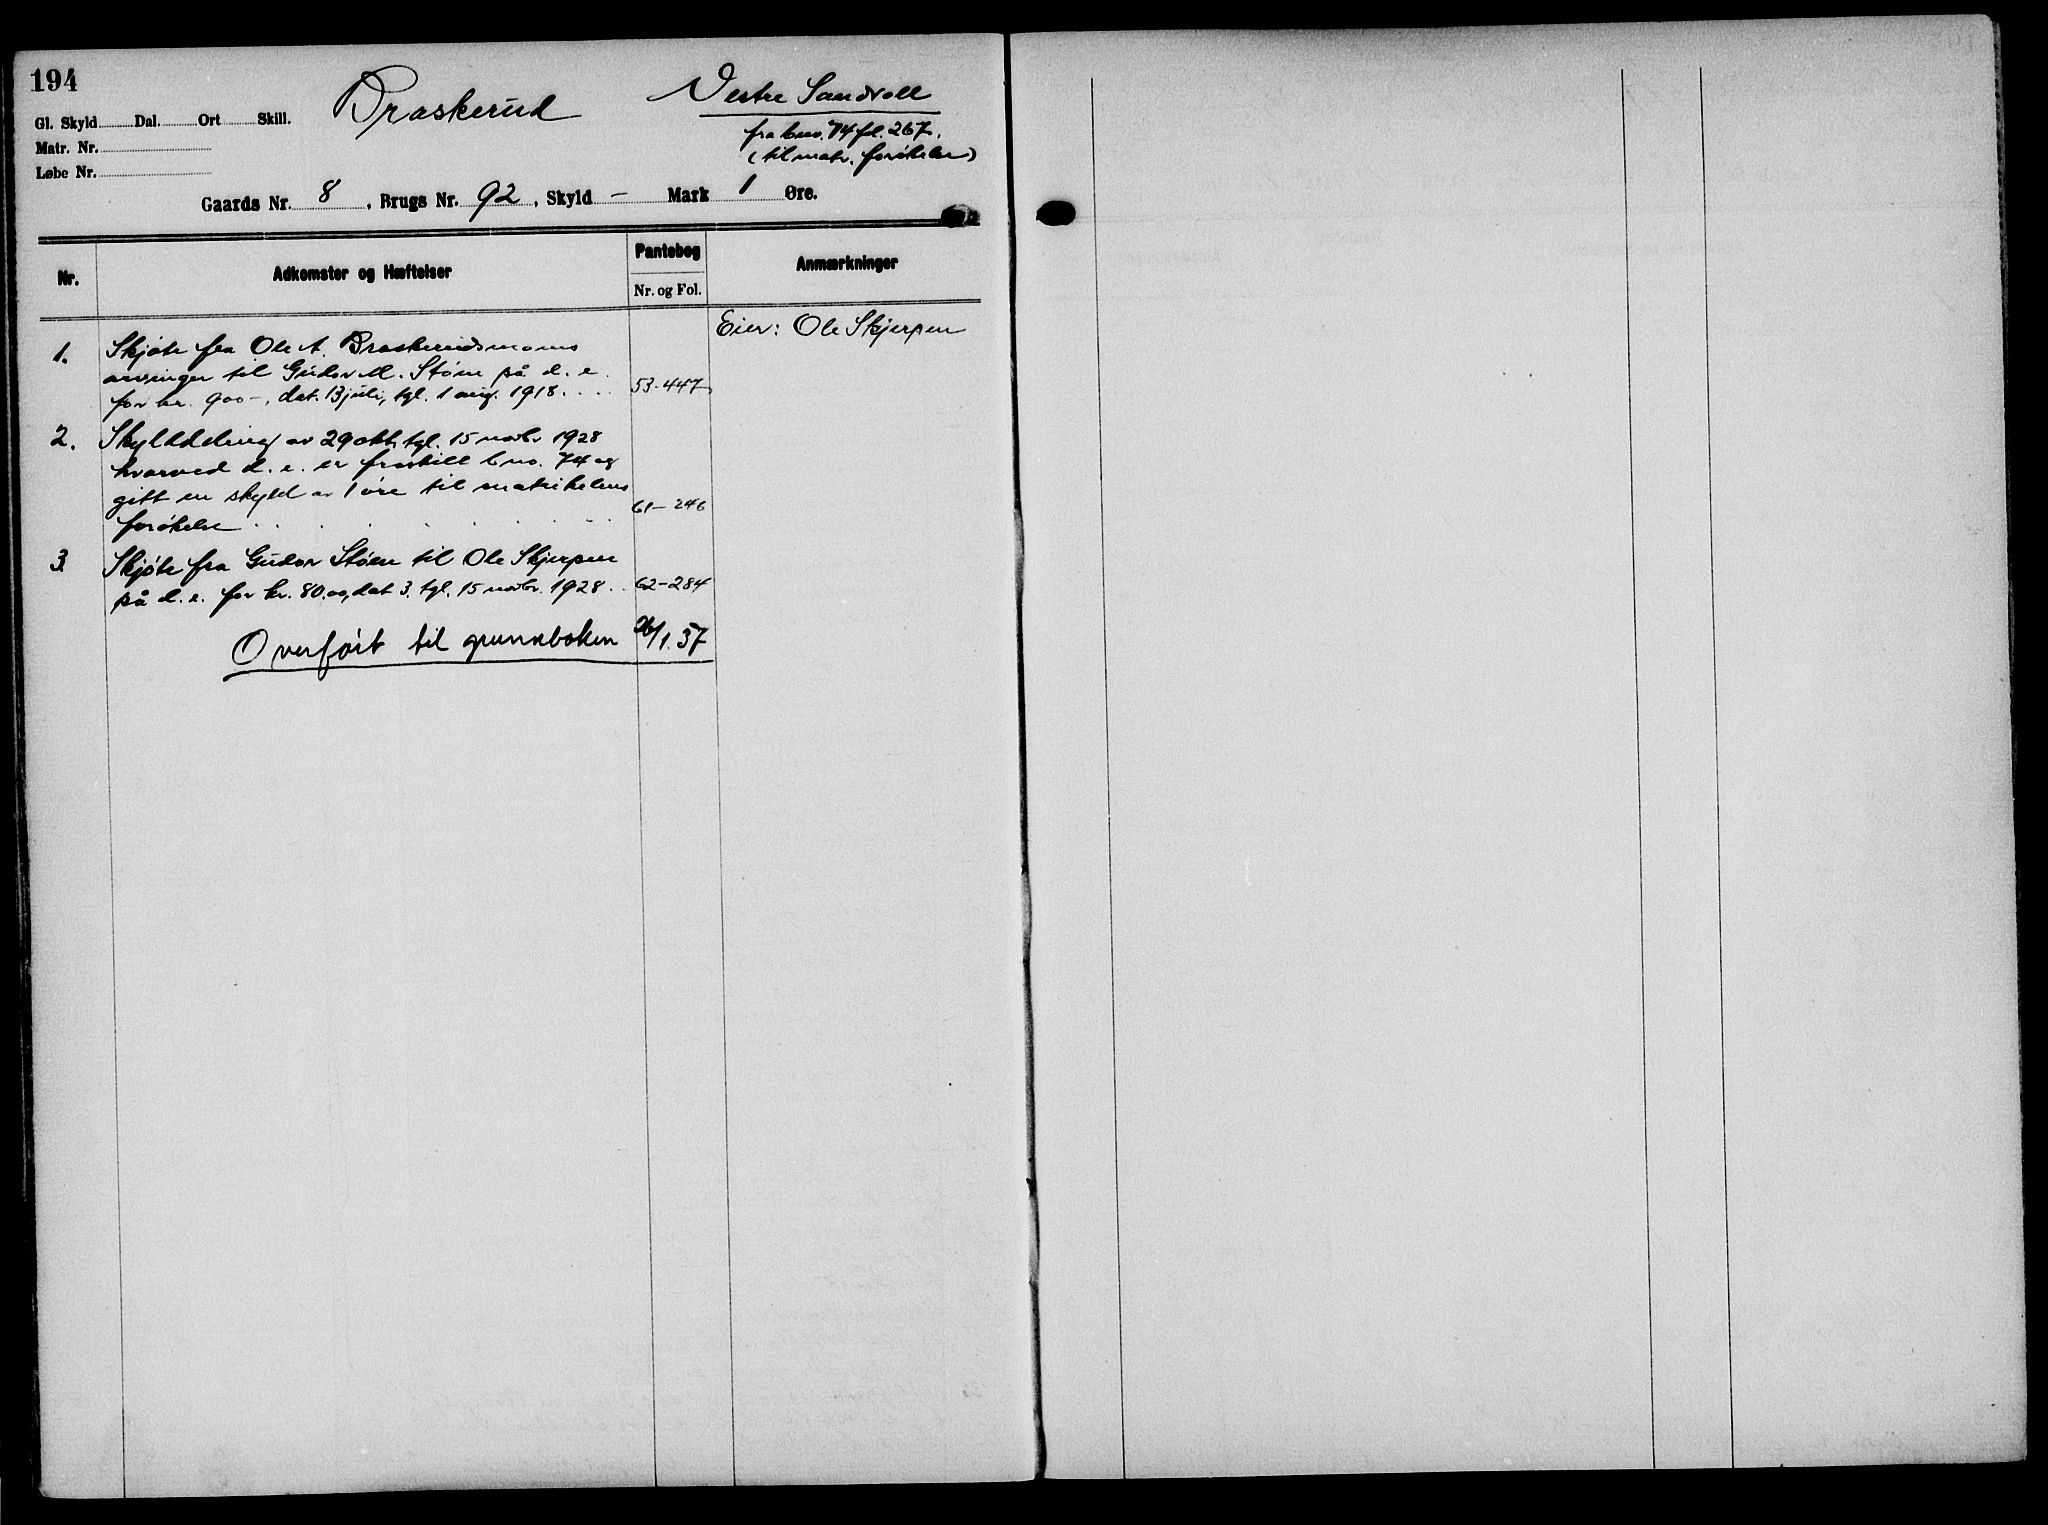 194
Braskerud
Vestre Sandvoll
Gl. Skyld Dal. Ort Skill.
fra bno. 74 fol. 267.
Matr. Nr.
(til matr. forøkelse)
Løbe Nr.
Gaards Nr. 8, Brugs Nr. 92, Skyld — Mark 1 Øre.
Nr.
Adkomster og Hæftelser
Pantebog
Nr. og Fol.
Anmærkninger
Eier: Ole Skjerpen
1. Skjøte fra Ole A. Braskerudsmoens
arvinger til Gudor M. Støen på d. e.
for kr. 900 –, dat. 13 juli, tgl. 1 aug. 1918. . . . 53-447
2. Skylddeling av 29 okt, tgl. 15 novbr 1928
hvorved d. e. er fraskilt bno. 74 og
gitt en skyld av 1 øre til matrikelens
forøkelse . . . . . . . . 61-246
3. Skjøte fra Gudor Støen til Ole Skjerpen
på d. e. for kr. 80.00, dat 3. tgl. 15 novbr. 1928 . . 62-284
Overført til grunnboken 26/1.37